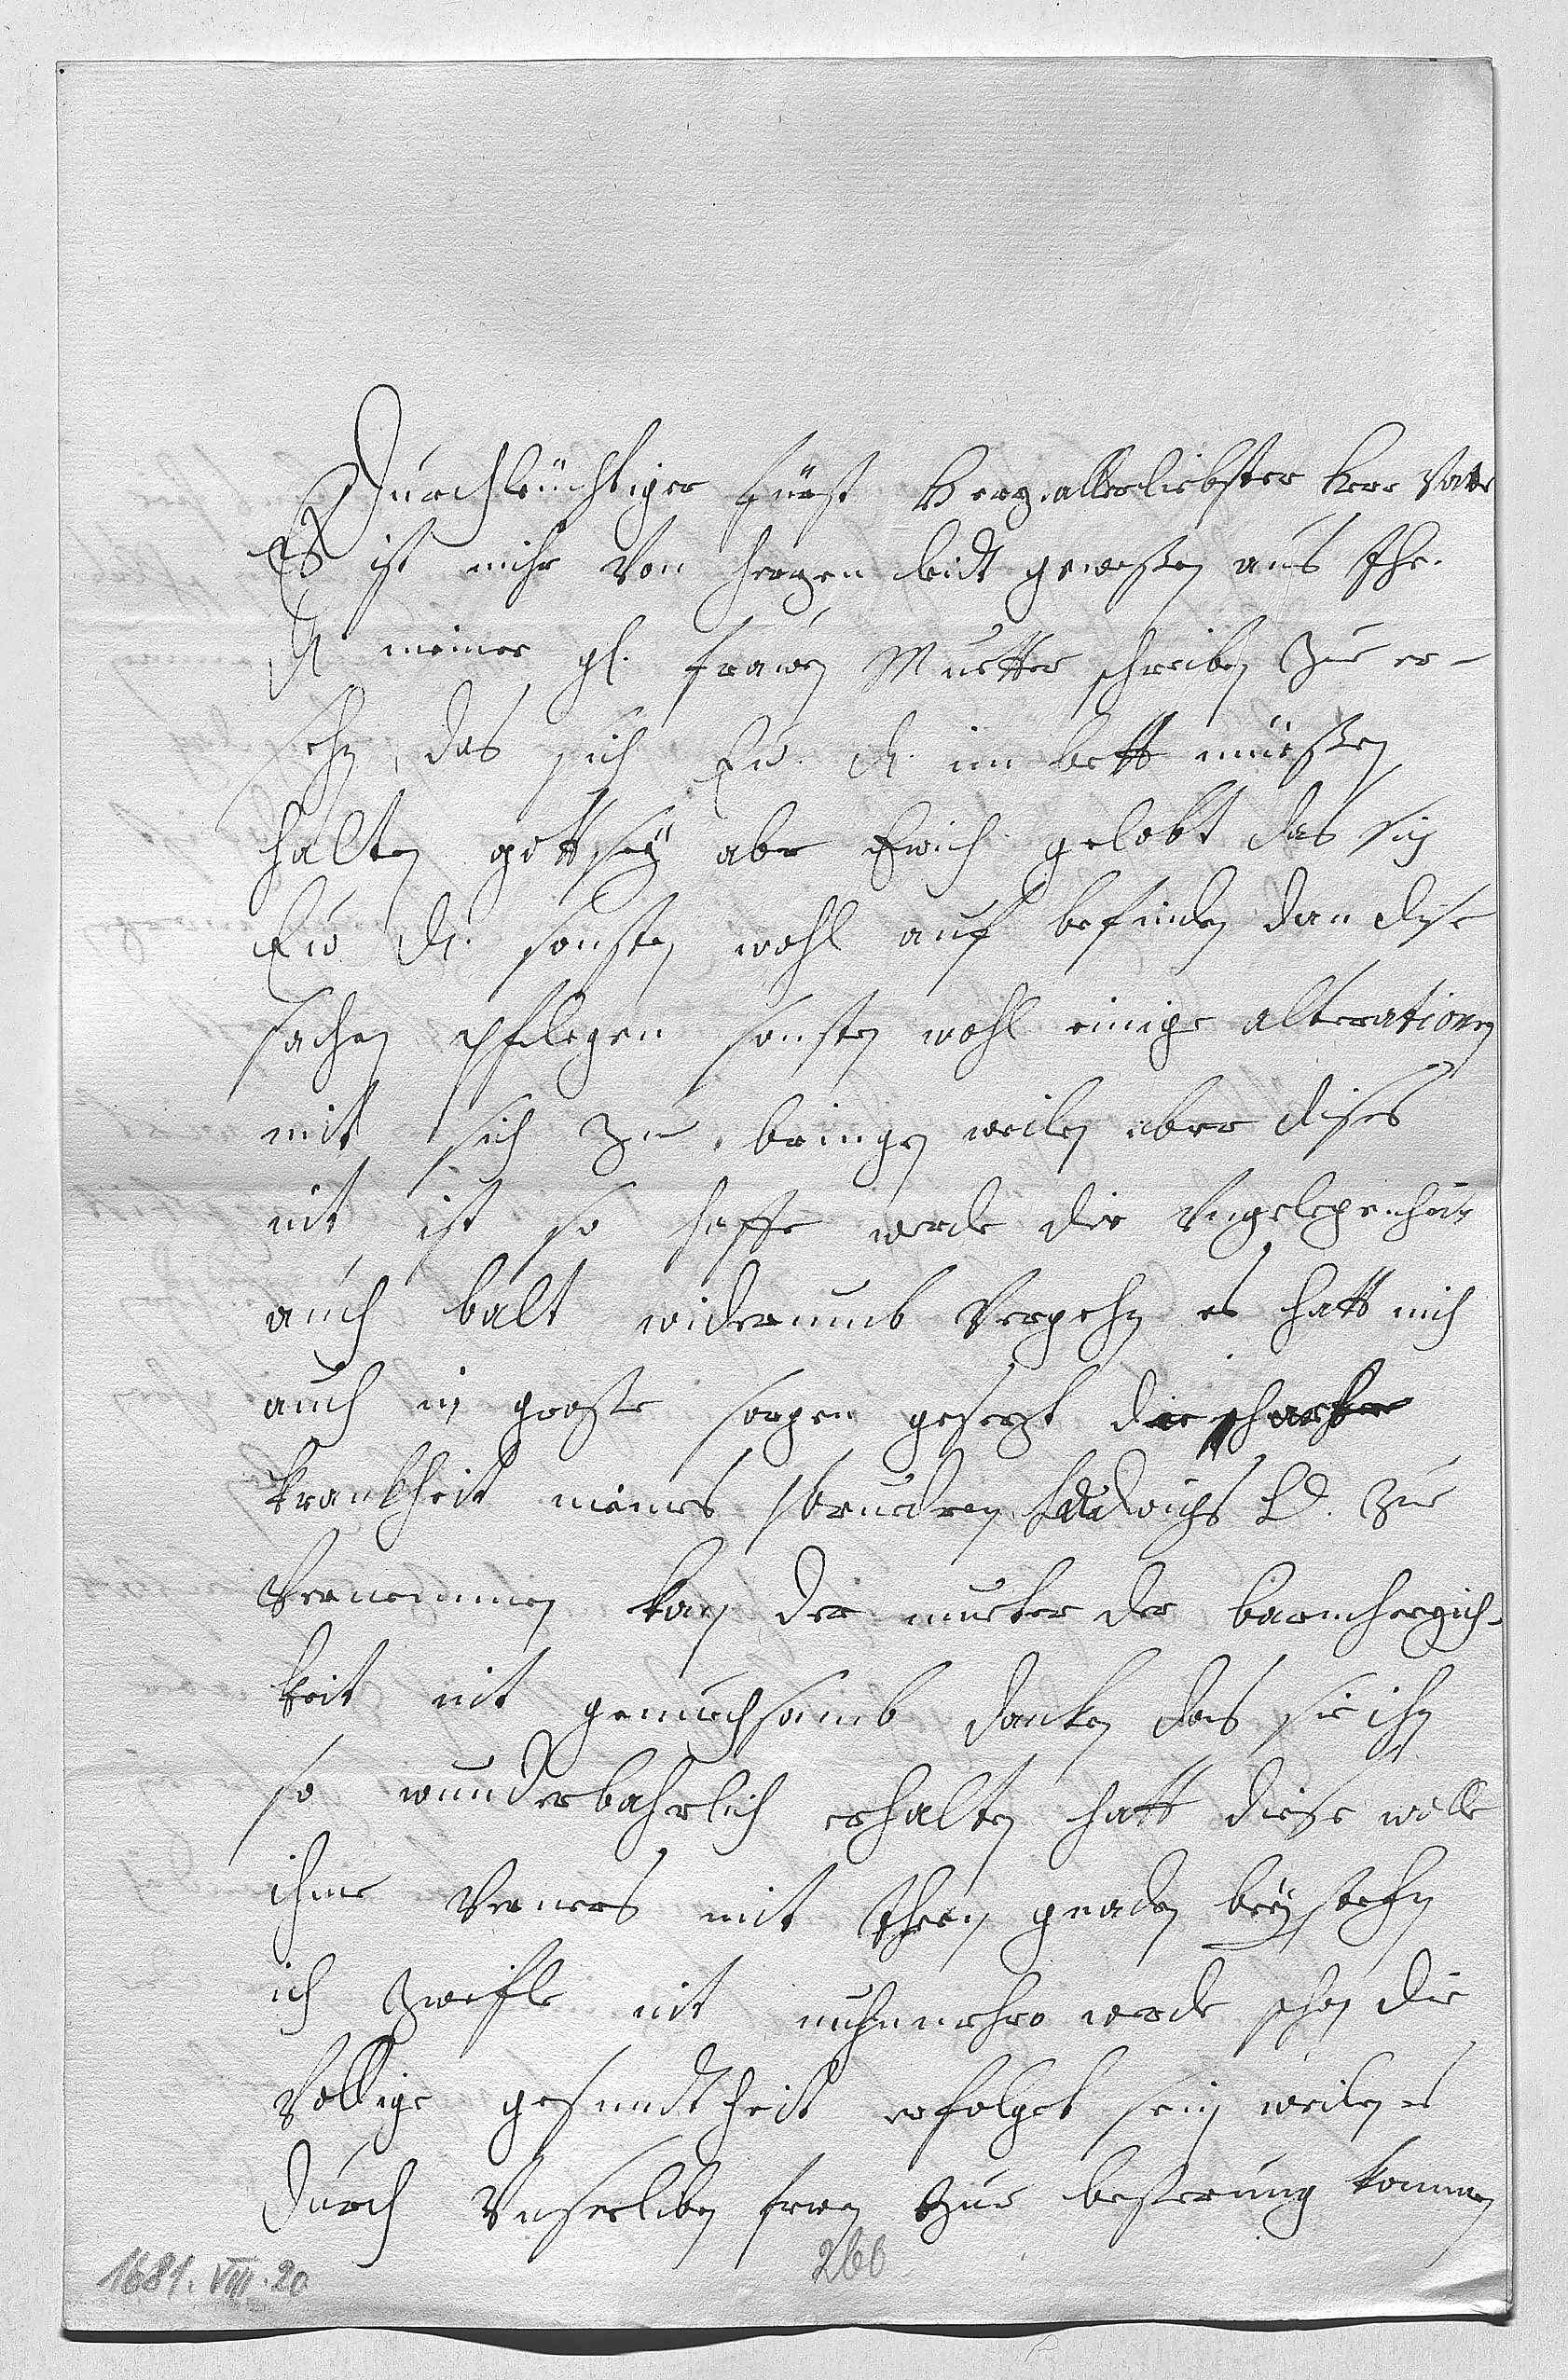 Durchleüchtiger Fürst Herz allerliebster Herr Vatter
Es ist mihr Von herzen leidt gewesen aus Ihr.
Dl. meiner gl. frauen Muetter schreiben zue er-
sehen, das sich Ew. Dl. im bett müessen
halten gott sey aber Ewich gelobt das sich
Ew Dl. sonsten wohl auf befinden dan dise
sachen pflegen sonsten wohl einige alterationen
mit sich zu bringen weilen aber dises
nit ist so hoffe werde die Ungelegenheit
auch balt widerumb Vergehen es hatt mich
auch in groste sorgen gesezt die scharfe
krankheit meines bruedern Ludwichs Ld. zue
Vernemmen kan der mueter der barmherzich-
keit nit genuechsamb danken das sie ihn
so wunderbahrlich erhalten hatt diese wolle
ihme Verners mit Ihren gnaden beystehen
ich zweifle nit nuhnmehro werde schon die
Vollige gesundtheit erfolget sein weilen es
durch Unserliben frauen zur besserung kommen
260
1681. VIII. 20